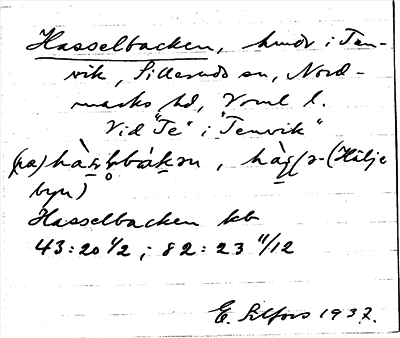 Hasselbacken, hmdr i Ten-
vik, Sillerud sn, Nord-
marks hd, Vrml l.
Vid "Te" i "Tenvik"
(Hälje
byn)
Hasselbacken kb
43:20 1/2 ; 82:23 11/12
E. Elfors 1937.